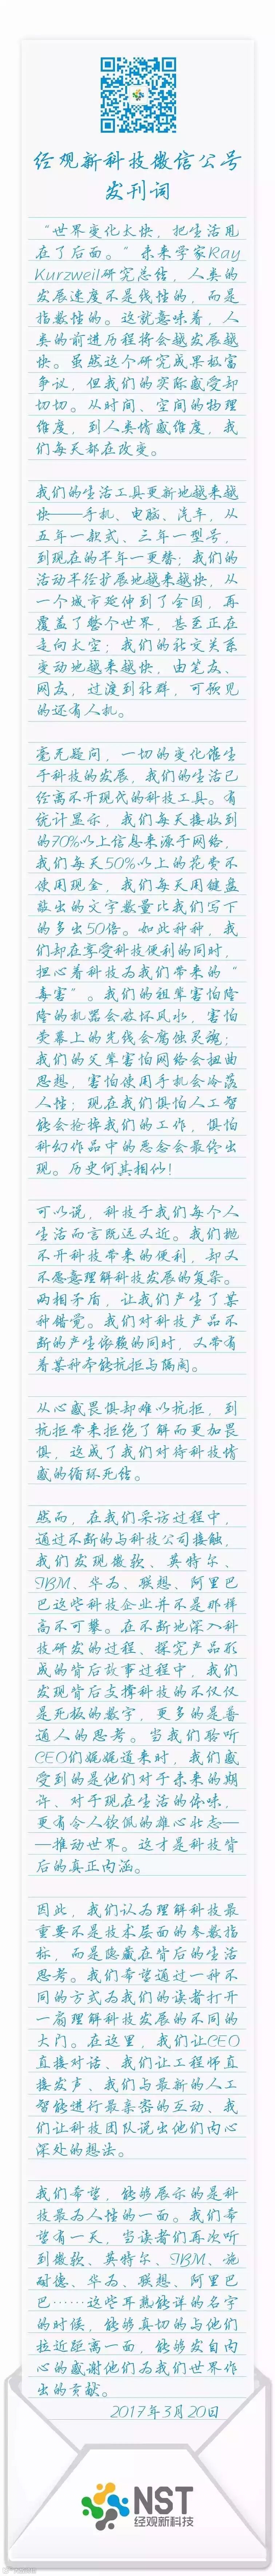 经观新科技微信公号
发刊词
“世界变化太快，把生活甩
在了后面。”未来学家Ray
Kurzweil研究总结，人类的
发展速度不是线性的，而是
指数性的。这就意味着，人
类的前进历程将会越发展越
快。虽然这个研究成果极富
争议，但我们的实际感受却
切切。从时间、空间的物理
维度，到人类情感维度，我
们每天都在改变。
我们的生活工具更新地越来越
快——手机、电脑、汽车，从
五年一款式、三年一型号，
到现在的半年一更替；我们的
活动半径扩展地越来越快，从
一个城市延伸到了全国，再
覆盖了整个世界，甚至正在
走向太空；我们的社交关系
变动地越来越快，由笔友、
网友，过渡到社群，可预见
的还有人机。
毫无疑问，一切的变化催生
于科技的发展，我们的生活已
经离不开现代的科技工具。有
统计显示，我们每天接收到
的70%以上信息来源于网络，
我们每天50%以上的花费不
使用现金，我们每天用键盘
敲出的文字数量比我们写下
的多出50倍。如此种种，我
们却在享受科技便利的同时，
担心着科技为我们带来的“
毒害”。我们的祖辈害怕隆
隆的机器会破坏风水，害怕
荧幕上的光线会腐蚀灵魂；
我们的父辈害怕网络会扭曲
思想，害怕使用手机会冷落
人性；现在我们惧怕人工智
能会抢掉我们的工作，惧怕
科幻作品中的恶念会最终出
现。历史何其相似！
可以说，科技于我们每个人
生活而言既远又近。我们抛
不开科技带来的便利，却又
不愿意理解科技发展的复杂。
两相矛盾，让我们产生了某
种错觉。我们对科技产品不
断的产生依赖的同时，又带有
着某种本能抗拒与隔阂。
从心感畏惧却难以抗拒，到
抗拒带来拒绝了解而更加畏
惧，这成了我们对待科技情
感的循环死结。
然而，在我们采访过程中，
通过不断的与科技公司接触，
我们发现微软、英特尔、
IBM、华为、联想、阿里巴
巴这些科技企业并不是那样
高不可攀。在不断地深入科
技研发的过程、探究产品形
成的背后故事过程中，我们
发现背后支撑科技的不仅仅
是死板的数字，更多的是普
通人的思考。当我们聆听
CEO们娓娓道来时，我们感
受到的是他们对于未来的期
许、对于现在生活的体味，
更有令人钦佩的雄心壮志—
—推动世界。这才是科技背
后的真正内涵。
因此，我们认为理解科技最
重要不是技术层面的参数指
标，而是隐藏在背后的生活
思考。我们希望通过一种不
同的方式为我们的读者打开
一扇理解科技发展的不同的
大门。在这里，我们让CEO
直接对话、我们让工程师直
接发声、我们与最新的人工
智能进行最亲密的互动、我
们让科技团队说出他们内心
深处的想法。
我们希望，能够展示的是科
技最为人性的一面。我们希
望有一天，当读者们再次听
到微软、英特尔、IBM、施
耐德、华为、联想、阿里巴
巴……这些耳熟能详的名字
的时候，能够真切的与他们
拉近距离一面，能够发自内
心的感谢他们为我们世界作
出的贡献。
2017年3月20日
NST
经观新科技